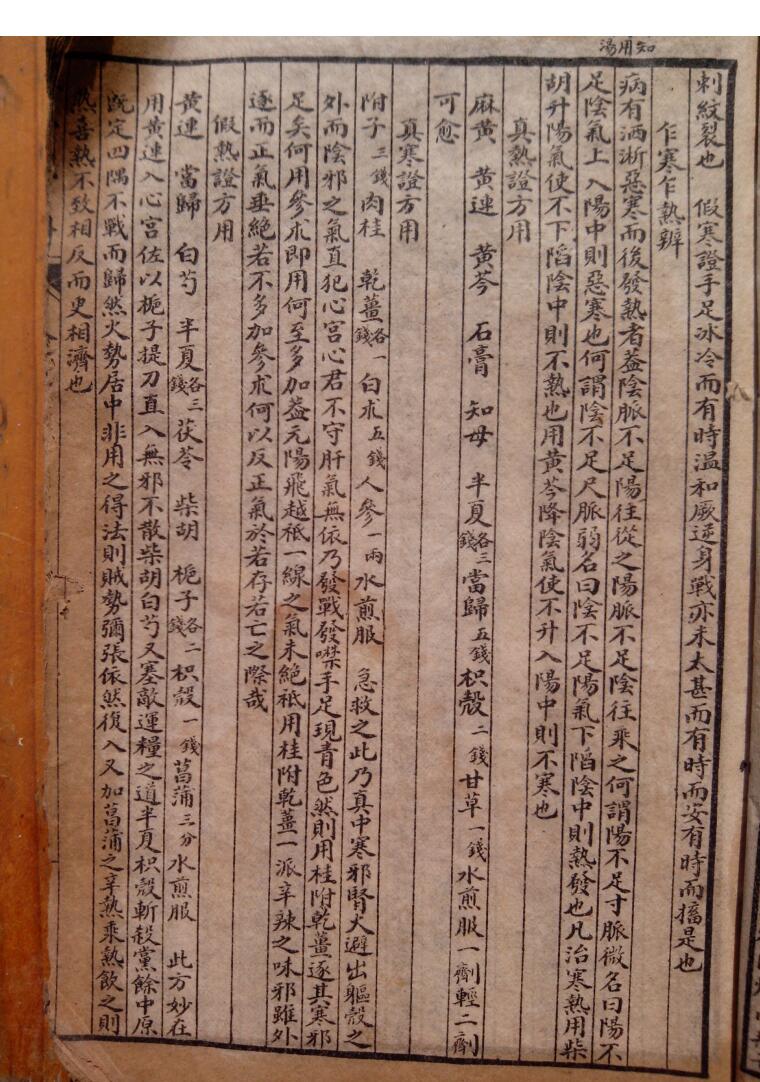 湯用知
刺紋裂也　假寒證手足冰冷而有時温和厥逆身戰亦未太甚而有時而安有時而搐是也
乍寒乍熱辨
病有洒淅惡寒而後發熱者葢陰脈不足陽往從之陽脈不足陰往乘之何謂陽不足寸脈微名曰陽不
足陰氣上入陽中則惡寒也何謂陰不足尺脈弱名曰陰不足陽氣下陷陰中則熱發也凡治寒熱用柴
胡升陽氣使不下陷陰中則不熱也用黃芩降陰氣使不升入陽中則不寒也
真熱證方用
麻黃　黃連　黃芩　石膏　知母　半夏各三錢當歸五錢枳殼二錢甘草一錢水煎服一劑輕二劑
可愈
真寒證方用
附子三錢肉桂　乾薑各一錢白朮五錢人參一兩水煎服　急救之此乃真中寒邪腎火避出軀殼之
外而陰邪之氣直犯心宮心君不守肝氣無依乃發戰發噤手足現青色然則用桂附乾薑逐其寒邪
足矣何用參朮即用何至多加葢元陽飛越祗一線之氣未絕祗用桂附乾薑一派辛辣之味邪雖外
逐而正氣垂絕若不多加參朮何以反正氣於若存若亡之際哉
假熱證方用
黃連　當歸　白芍　半夏各三錢茯苓　柴胡　梔子各二錢枳殼一錢菖蒲三分水煎服　此方妙在
用黃連入心宮佐以梔子提刀直入無邪不散柴胡白芍又塞敵運糧之道半夏枳殼斬殺黨餘中原
既定四隅不戰而歸然火勢居中非用之得法則賊勢彌張依然復入又加菖蒲之辛熱乘熱飲之則
熱喜熱不致相反而更相濟也